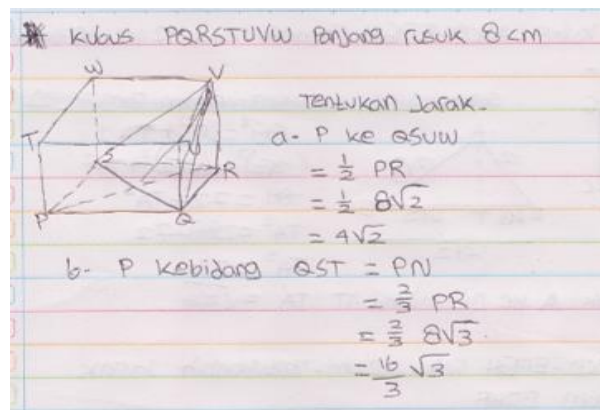 * Kubus PQRSTUVW Panjang rusuk 8 cm
W
V
Tentukan Jarak.
T
U
a- P ke QSUW
S
R
= 1/2 PR
P
Q
= 1/2 8√2
= 4√2
b- P kebidang QST = PN
= 2/3 PR
= 2/3 8√3
= 16/3 √3